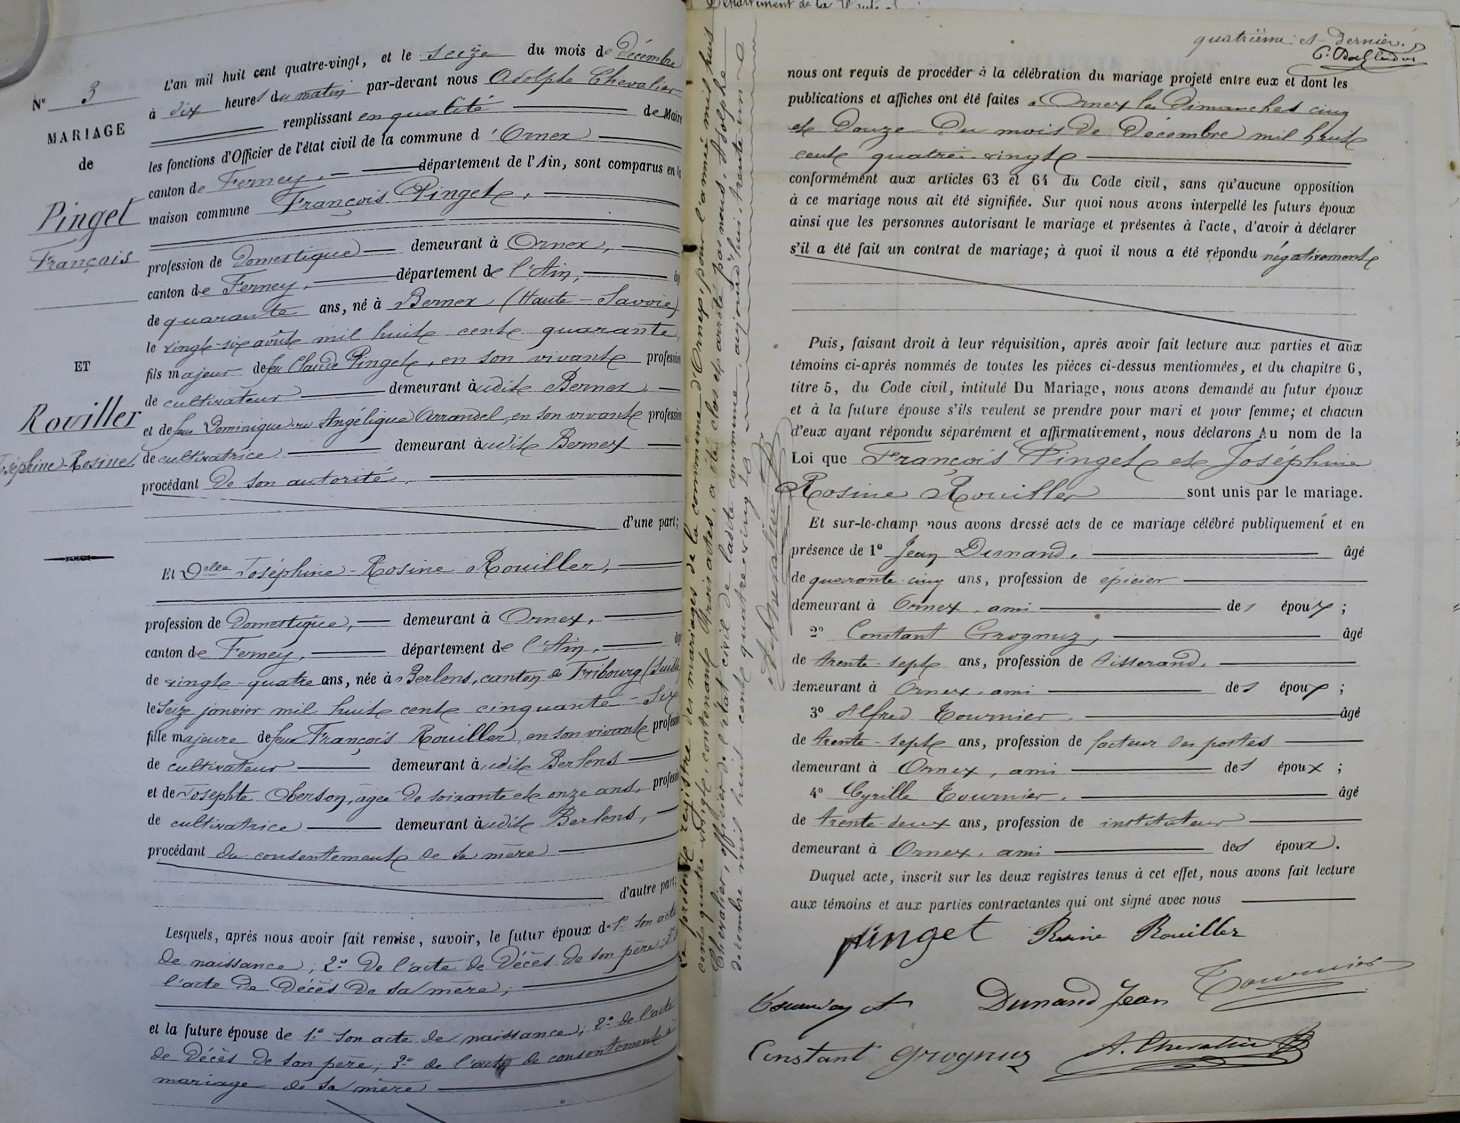 N° 3
MARIAGE
de
Pinget
François
ET
Rouiller
Joséphine-Rosine
L'an mil huit cent quatre-vingt, et le seize du mois de Décembre
à dix heures du matin par-devant nous Adolphe Chevalier
remplissant en qualité de Maire
les fonctions d'Officier de l'état civil de la commune d'Ornex
canton de Ferney, département de l'Ain, sont comparus en la
maison commune François Pinget,
profession de Domestique demeurant à Ornex,
canton de Ferney, département de l'Ain,
de quarante ans, né à Bernex (Haute-Savoie)
le vingt-six août mil huit cent quarante,
fils majeur de feu Claude Pinget, en son vivant profession
de cultivateur demeurant à udit Bernex,
et de feu Dominique Angélique Arrandel, en son vivant profession
de cultivatrice demeurant à udit Bernex
procédant de son autorité,
d'une part;
Et Delle Joséphine-Rosine Rouiller,
profession de Domestique, demeurant à Ornex,
canton de Ferney, département de l'Ain,
de vingt-quatre ans, née à Berlens, canton de Fribourg (Suisse
le seize janvier mil huit cent cinquante-six
fille majeure de feu François Rouiller, en son vivant profession
de cultivateur demeurant à udit Berlens
et de Josephte Oberson, âgée de soixante et onze ans, profession
de cultivatrice demeurant à udit Berlens,
procédant du consentement de sa mère
d'autre part;
Lesquels, après nous avoir fait remise, savoir, le futur époux de 1° son acte
de naissance; 2° de l'acte de décès de son père; 3°
l'acte de décès de sa mère;
et la future épouse de 1° son acte de naissance; 2° de l'acte
de décès de son père; 3° de l'acte de consentement à
mariage de sa mère
Le présent registre des mariages de la commune d'Ornex, pour l'année mil huit
cent quatre-vingt, contenant trois actes, a été clos et arrêté par nous, Adolphe
Chevalier, officier de l'état civil de ladite commune, aujourd'hui trente un
décembre mil huit cent quatre-vingt
A. Chevalier
quatrième et dernier.
nous ont requis de procéder à la célébration du mariage projeté entre eux et dont les
publications et affiches ont été faites à Ornex les Dimanches cinq
et Douze du mois de Décembre mil huit
cent quatre-vingt
conformément aux articles 63 et 64 du Code civil, sans qu'aucune opposition
à ce mariage nous ait été signifiée. Sur quoi nous avons interpellé les futurs époux
ainsi que les personnes autorisant le mariage et présentes à l'acte, d'avoir à déclarer
s'il a été fait un contrat de mariage; à quoi il nous a été répondu négativement
Puis, faisant droit à leur réquisition, après avoir fait lecture aux parties et aux
témoins ci-après nommés de toutes les pièces ci-dessus mentionnées, et du chapitre 6,
titre 5, du Code civil, intitulé Du Mariage, nous avons demandé au futur époux
et à la future épouse s'ils veulent se prendre pour mari et pour femme; et chacun
d'eux ayant répondu séparément et affirmativement, nous déclarons Au nom de la
Loi que François Pinget et Joséphine
Rosine Rouiller sont unis par le mariage.
Et sur-le-champ nous avons dressé acte de ce mariage célébré publiquement et en
présence de 1° Jean Dunand, âgé
de quarante-cinq ans, profession de épicier
demeurant à Ornex, ami des époux;
2° Constant Grognuz, âgé
de trente-sept ans, profession de tisserand,
demeurant à Ornex, ami des époux;
3° Alfred Tournier, âgé
de trente-sept ans, profession de facteur des postes
demeurant à Ornex, ami des époux;
4° Cyrille Tournier, âgé
de trente deux ans, profession de instituteur
demeurant à Ornex, ami des époux.
Duquel acte, inscrit sur les deux registres tenus à cet effet, nous avons fait lecture
aux témoins et aux parties contractantes qui ont signé avec nous
pinget Rosine Rouiller
Dunand Jean Tournier
Constant grognuz A. Chevalier